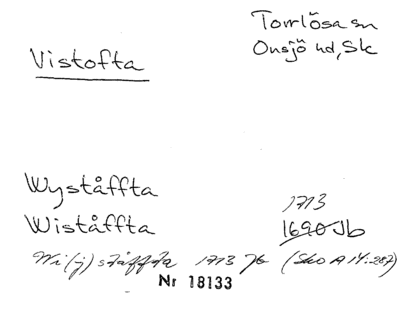 Torrlösa sn
Onsjö hd, Sk
Vistofta
Wyståffta
Wiståffta
1713
1690 Jb
Wi(j)ståffta 1713 Jb (Sko A 14:287)
Nr 18133